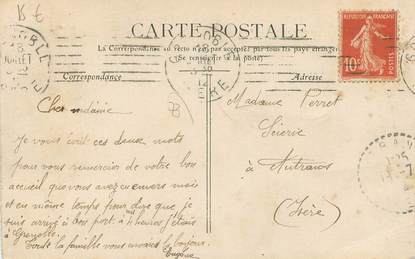 B €
CARTE POSTALE
La Correspondance au recto n'est pas acceptée par tous les pays étrangers
(Se renseigner à la Poste)
Correspondance
Adresse
10
Cher madame
Je vous écrit ces deux mots
pour vous remercier de votre bon
accueil que vous avez eu envers moi
et en même temps pour dire que je
suis arrivé à bon port à 4 heures j'étais
à Grenoble
Toute la famille vous envoie le bonjour.
Eugène
Madame Perret
Scierie
à Autrans
(Isère)